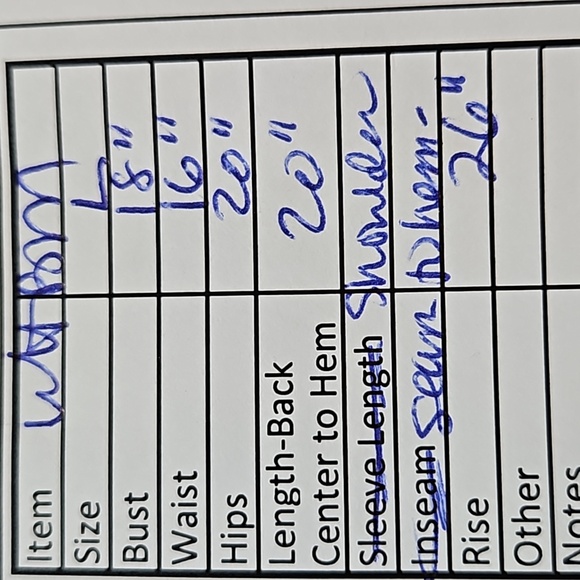 Item
Size L
Bust 18"
Waist 16"
Hips 20"
Length-Back 20"
Center to Hem
Sleeve Length Shoulder
Inseam seam to hem-
Rise 26"
Other
Notes